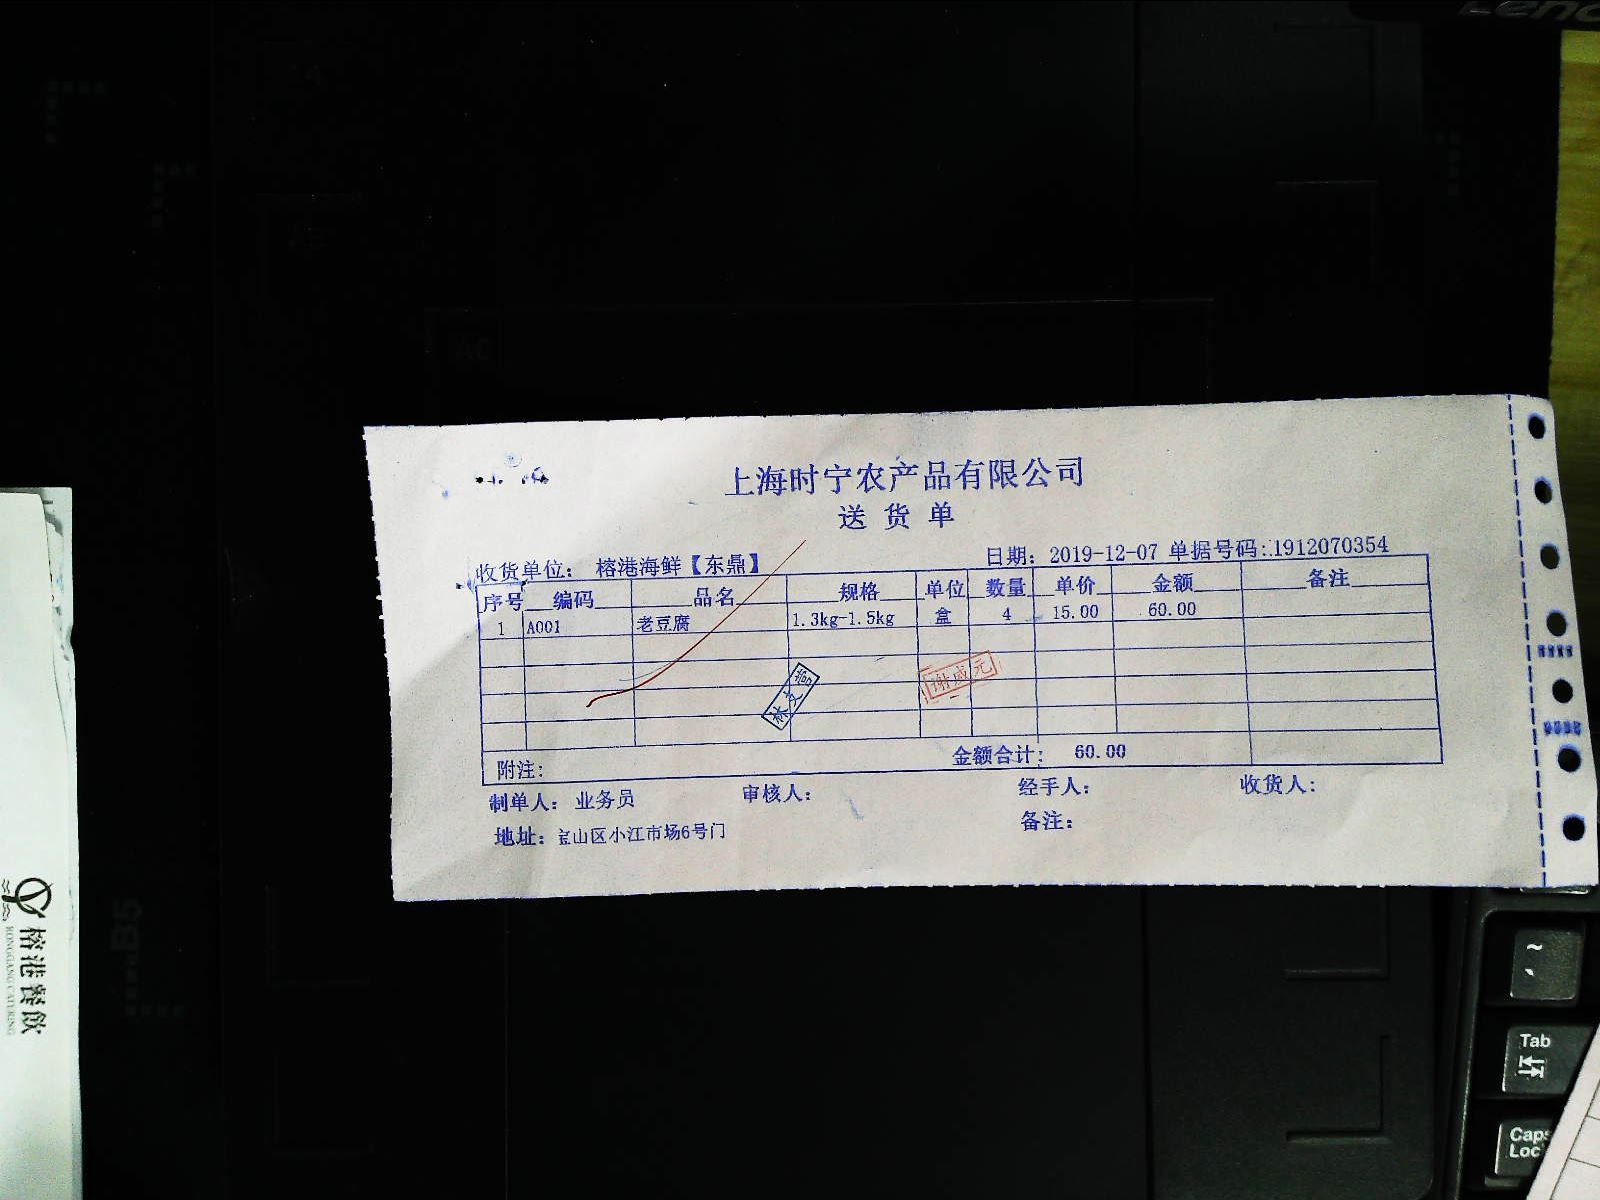 上海时宁农产品有限公司
送货单
收货单位: 榕港海鲜【东鼎】 日期: 2019-12-07 单据号码: 1912070354
序号 编码 品名 规格 单位 数量 单价 金额 备注
1 A001 老豆腐 1.3kg-1.5kg 盒 4 15.00 60.00
谢咸元
附注: 金额合计: 60.00
制单人: 业务员 审核人: 经手人: 收货人:
地址: 宝山区小江市场6号门 备注:
榕港餐飲
RONGGANG CATERING
B5
Tab
Caps
Loc